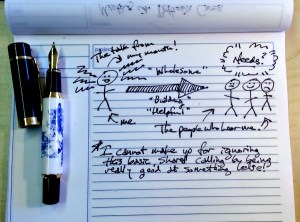 The talk from
my mouth!
"Wholesome"
Needs!
"Building"
"Helpful"
me
The people who hear me.
* I cannot make up for ignoring
this basic shared calling by being
really good at something else!